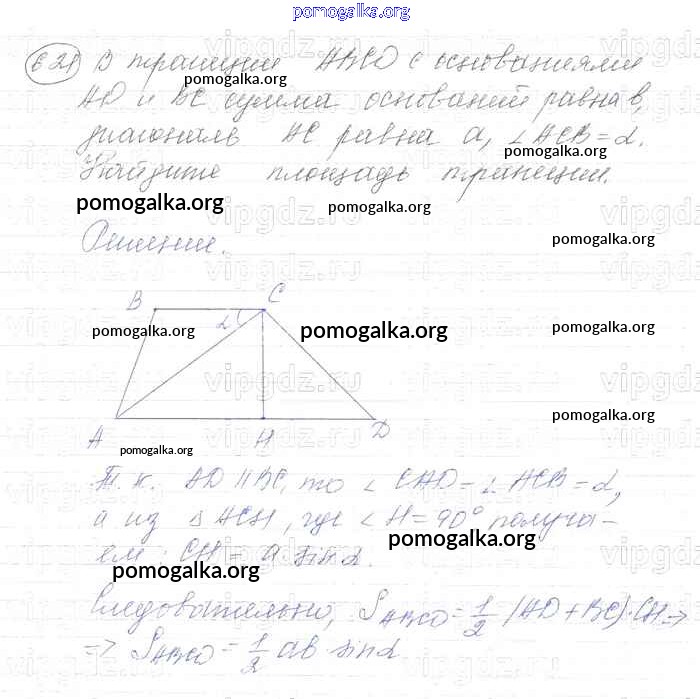 pomogalka.org
621 В трапеции ABCD с основаниями
pomogalka.org
AD и BC сумма оснований равна b,
диагональ AC равна a, ∠ACB = α.
pomogalka.org
Найдите площадь трапеции.
pomogalka.org
pomogalka.org
vipgdz.ru
Решение.
pomogalka.org
B C
α
pomogalka.org
pomogalka.org
pomogalka.org
vipgdz.ru
pomogalka.org
A H D
pomogalka.org
Т. к. AD || BC, то ∠CAD = ∠ACB = α,
а из △ACH, где ∠H = 90° получа-
pomogalka.org
ем: CH = a sin α.
pomogalka.org
Следовательно, S ABCD = 1/2 (AD + BC)·CH ⇒
⇒ S ABCD = 1/2 ab sin α